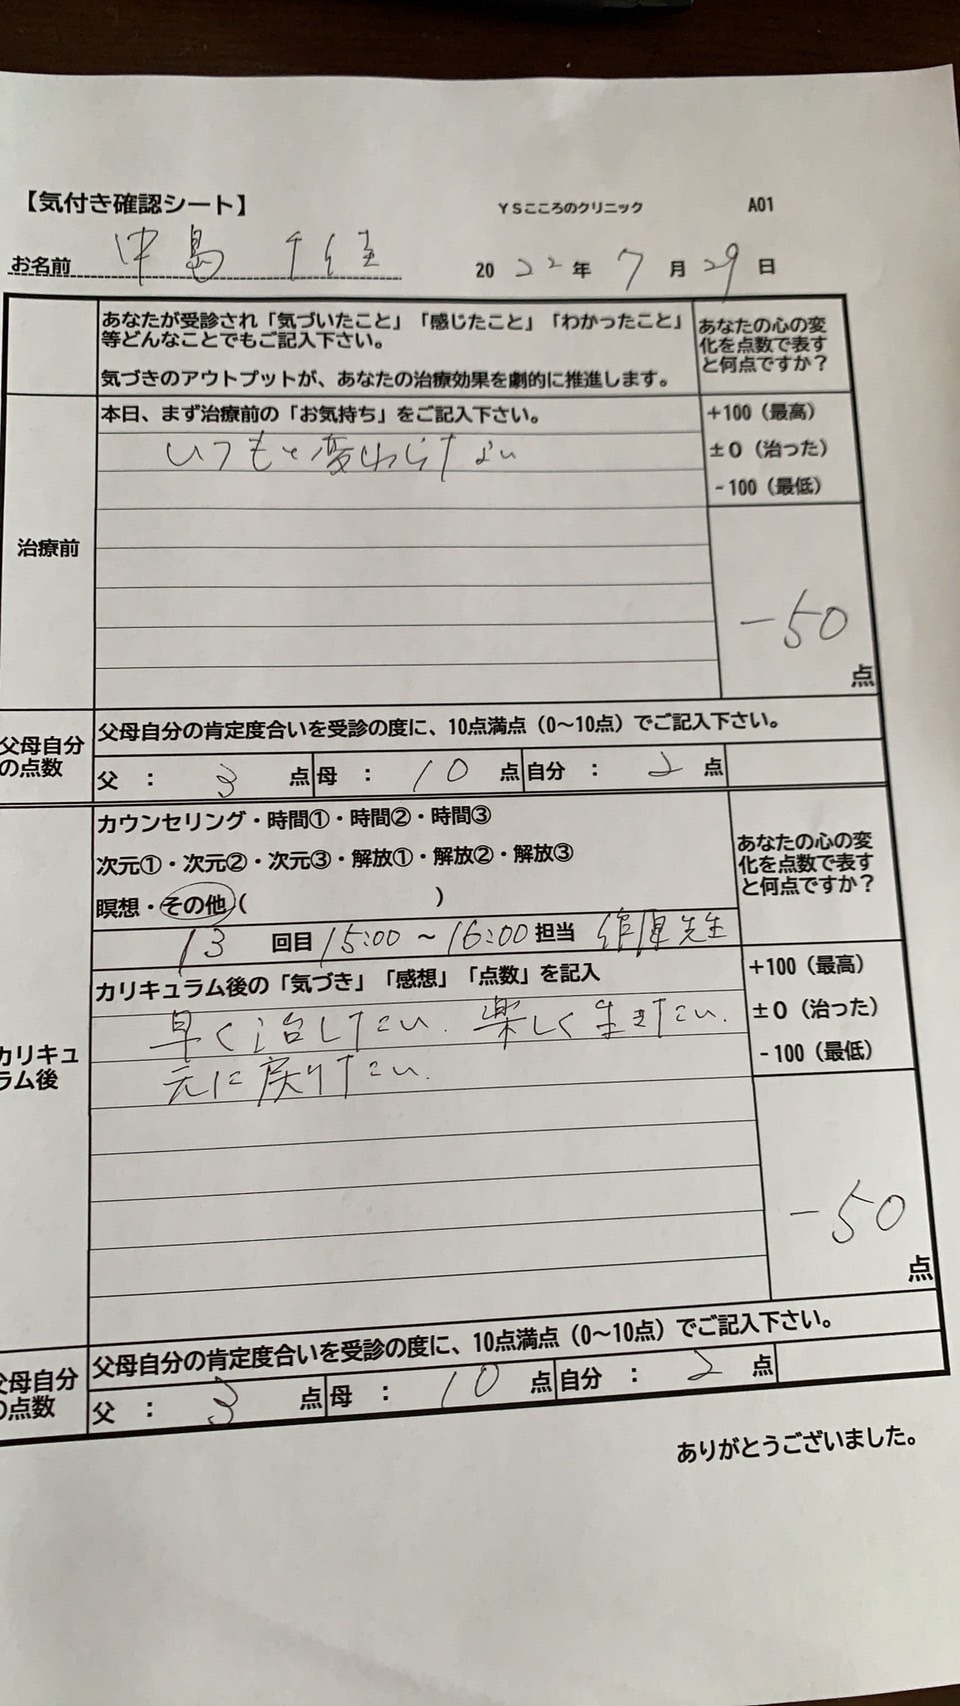 【気付き確認シート】 YSこころのクリニック A01
お名前 中島 千佳 2022年 7月 29日
あなたが受診され「気づいたこと」「感じたこと」「わかったこと」
等どんなことでもご記入下さい。
気づきのアウトプットが、あなたの治療効果を劇的に推進します。
あなたの心の変
化を点数で表す
と何点ですか?
治療前
本日、まず治療前の「お気持ち」をご記入下さい。
いつもと変わらない
+100(最高)
±0(治った)
-100(最低)
-50
点
父母自分
の点数
父母自分の肯定度合いを受診の度に、10点満点(0~10点)でご記入下さい。
父 : 3 点 母 : 10 点 自分 : 2 点
カウンセリング・時間①・時間②・時間③
次元①・次元②・次元③・解放①・解放②・解放③
瞑想・その他( )
あなたの心の変
化を点数で表す
と何点ですか?
13 回目 15:00 ~ 16:00 担当 先生
カリキュ
ラム後
カリキュラム後の「気づき」「感想」「点数」を記入
早く治したい. 楽しく生きたい.
元に戻りたい.
+100(最高)
±0(治った)
-100(最低)
-50
点
父母自分
の点数
父母自分の肯定度合いを受診の度に、10点満点(0~10点)でご記入下さい。
父 : 3 点 母 : 10 点 自分 : 2 点
ありがとうございました。